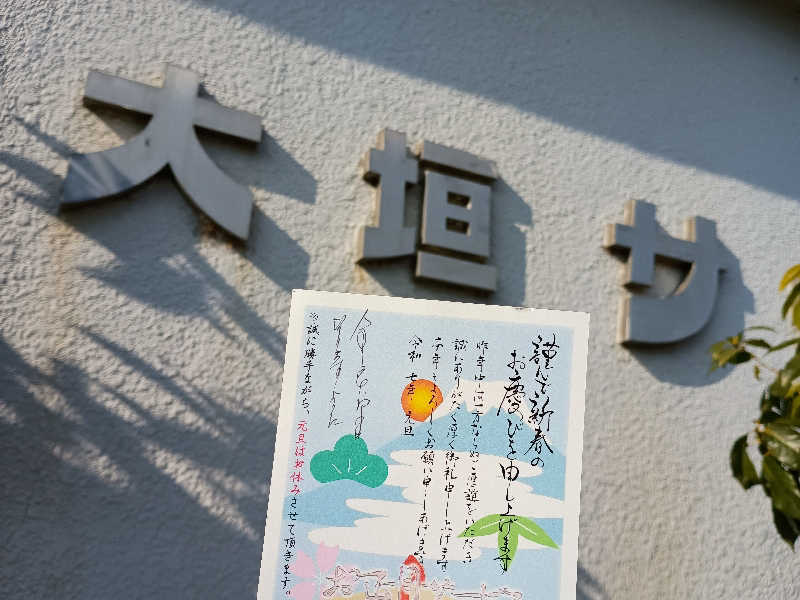 大垣サ
謹んで新春の
お慶びを申し上げます
昨年中は一方ならぬご厚誼をいただき
誠にありがたく厚く御礼申し上げます
本年もよろしくお願い申しあげます
令和 七年 元旦
※誠に勝手ながら、元旦はお休みさせて頂きます。